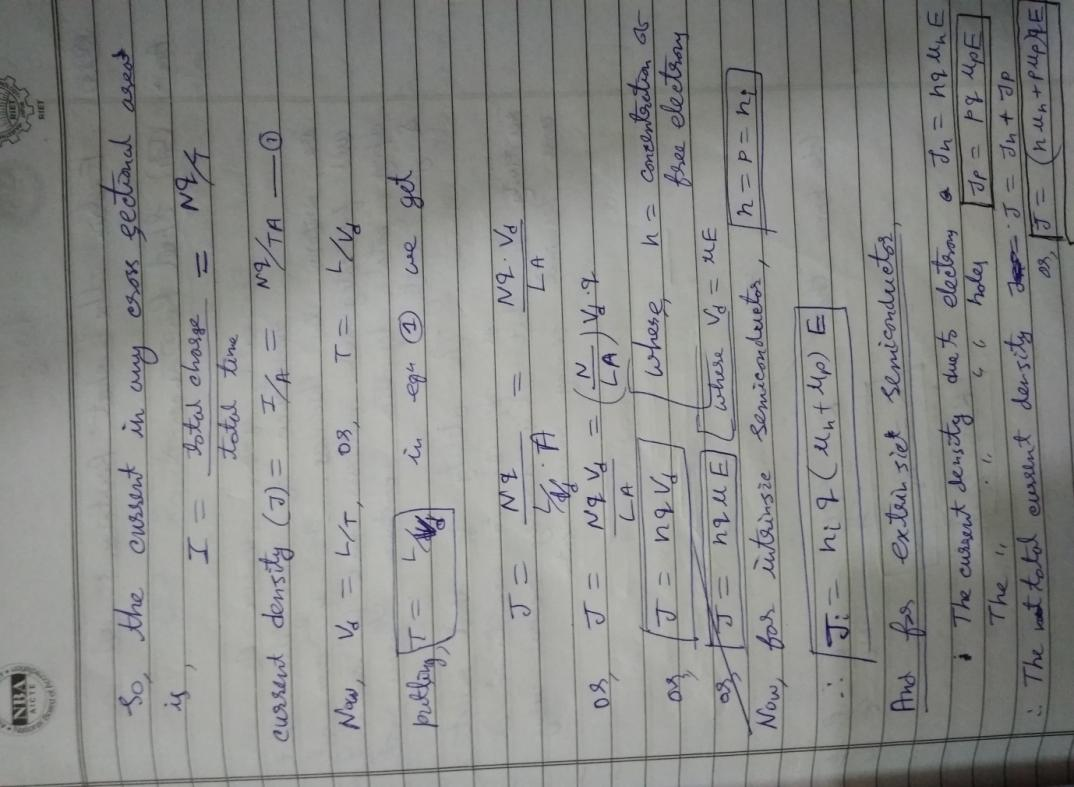 NBA
AICTE
RIET
So, the current in any cross sectional area
is,
I = total charge / total time = Nq/T
current density (J) = I/A = Nq/TA —— ①
Now, Vd = L/T, or, T = L/Vd
putting, T = L/Vd in eqn ① we get
J = Nq / (L/Vd · A) = Nq·Vd / LA
or, J = NqVd / LA = (N / LA) Vd·q
or, J = nqVd [where, n = concentration of
free electron
or, J = nqμE [where Vd = μE
Now, for intrinsic semiconductor, n = p = ni
∴ Ji = ni q (μn + μp) E
And for extrinsict semiconductor,
The current density due to electron Jn = nqμnE
The " " " " holes Jp = pqμpE
∴ The total current density J = Jn + Jp
or, J = (nμn + pμp)qE